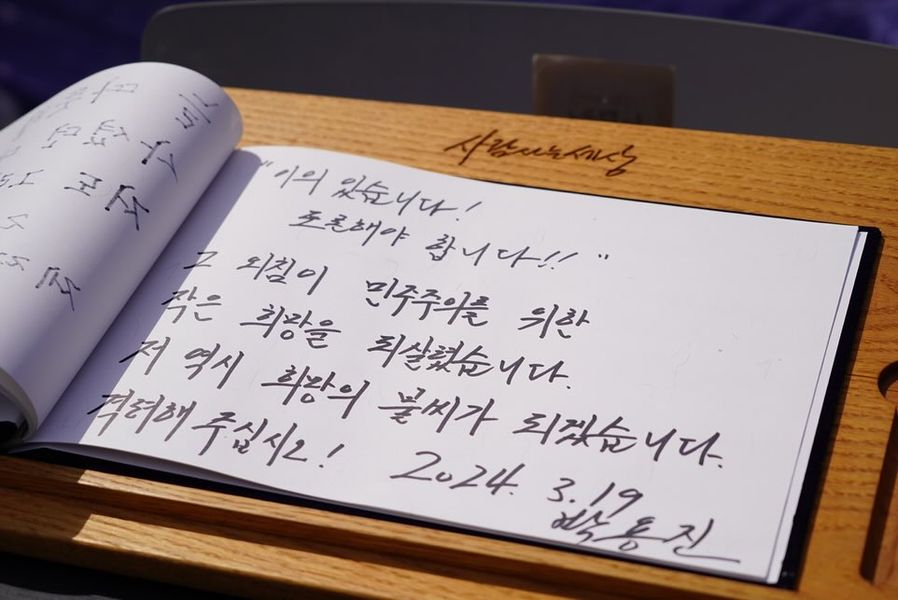 사람사는세상
"이의 있습니다!
토론해야 합니다!!"
그 외침이 민주주의를 위한
작은 희망을 되살렸습니다.
저 역시 희망의 불씨가 되겠습니다.
격려해 주십시오!
2024. 3. 19
박용진